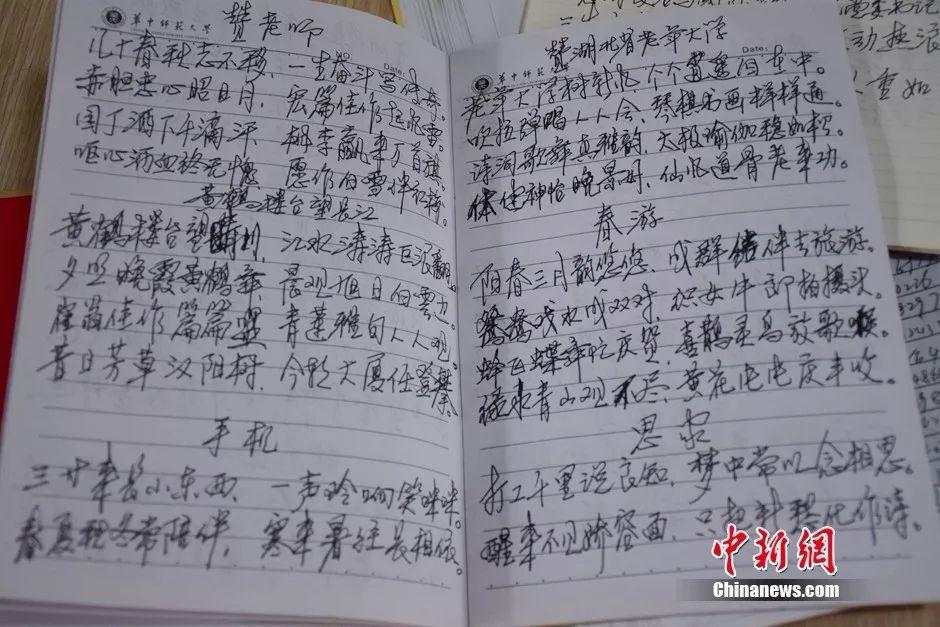 華中师范大学
赞老师
Date:
几十春秋志不移，一生奋斗写传奇。
赤胆忠心昭日月，宏篇佳作起
园丁洒下千滴汗，桃李赢来万首棋
呕心沥血终无愧，愿作白雪伴红梅。
黄鹤楼台望长江
黄鹤楼台望晴川，江水涛涛巨浪翻
夕照晚霞黄鹤舞，晨观旭日白云
崔颢佳作篇篇，青莲雅句人人
昔日芳草汉阳树，今朝大厦任登攀。
手机
三寸来长小东西，一声铃响笑咪咪。
春夏秋冬常陪伴，寒来暑往长相依。
華中师范
赞湖北省老年大学
Date:
老年大学个个在中。
吹拉弹唱人人会，琴棋书画样样通。
诗词歌舞真雅韵，太极瑜伽稳如松。
体健神怡晚景明，仙风道骨老年功。
春游
阳春三月韵悠悠，成群结伴去旅游。
鸳鸯戏水成双对，织女牛郎拍摄头。
蜂飞蝶舞忙庆贺，喜鹊灵鸟放歌喉。
绿水青山观不尽，黄花屯屯庆丰收。
思念
打工千里说良知，梦中常以念相思。
醒来不见娇容面，只把作诗。
重如
中新網
Chinanews.com